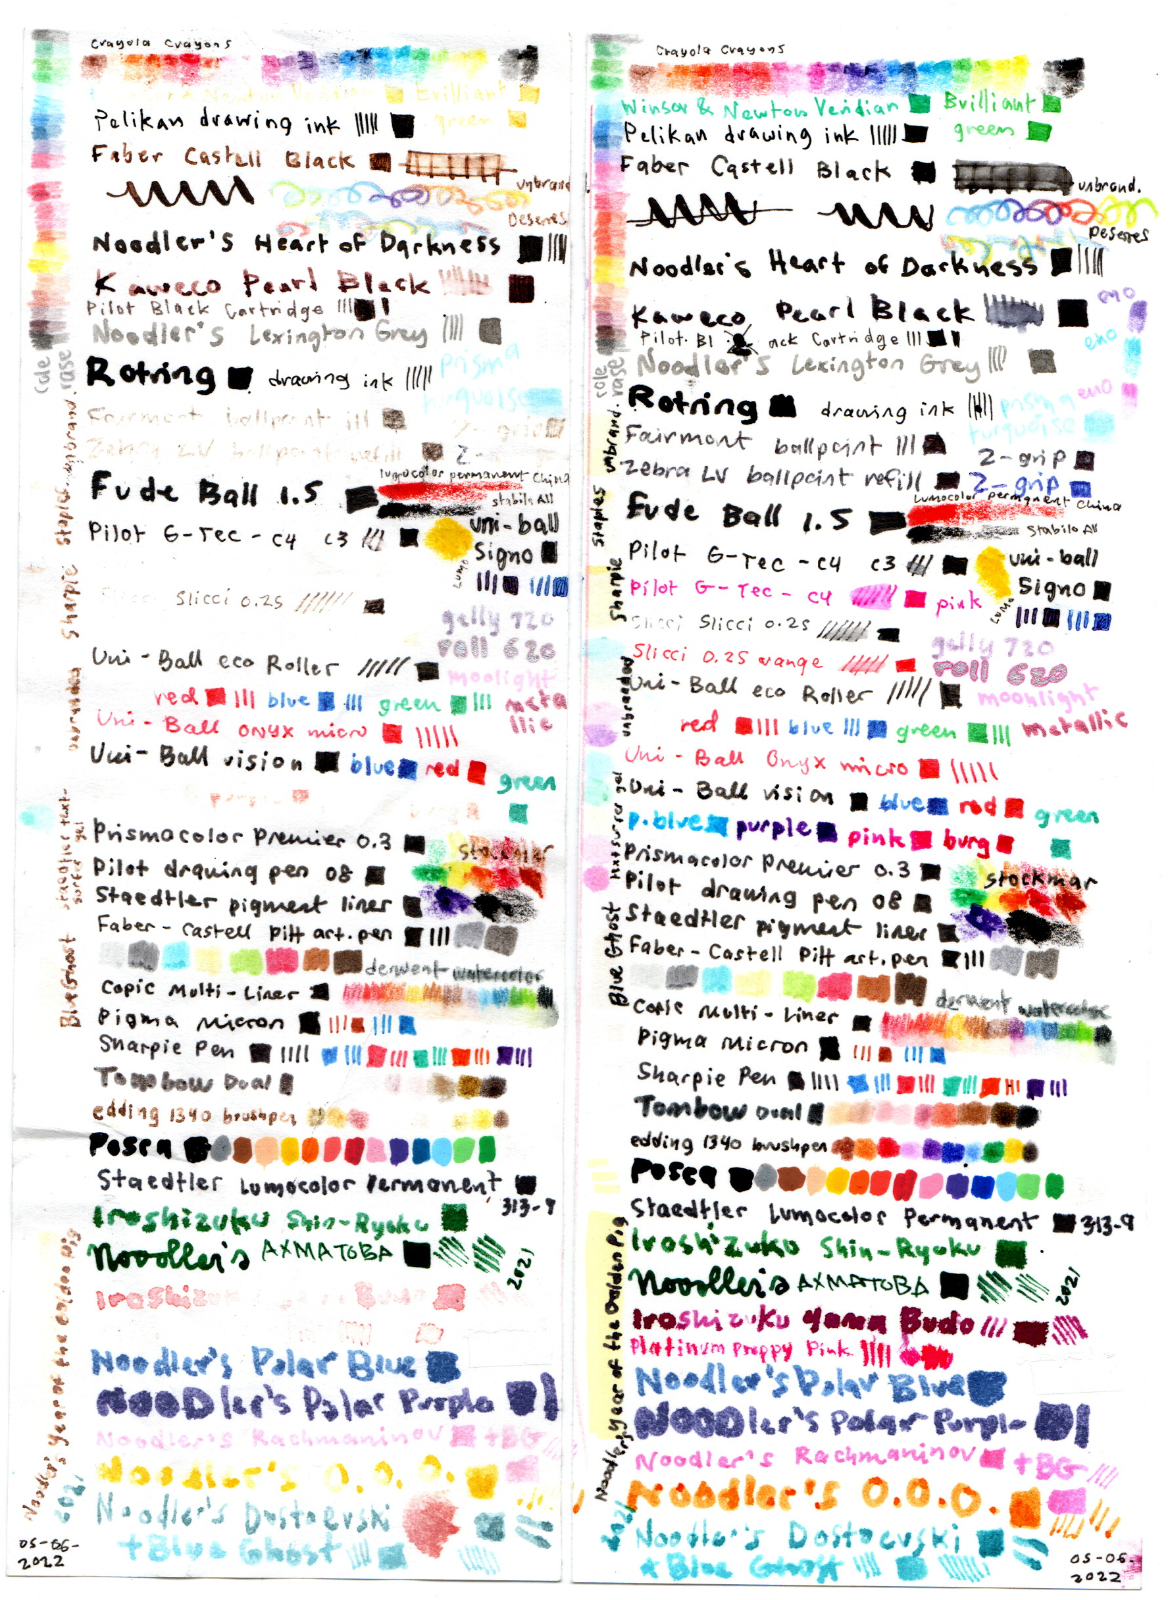 Crayola Crayons
Brilliant
Pelikan drawing ink
green
Faber Castell Black
unbrand
Deseres
Noodler's Heart of Darkness
Kaweco Pearl Black
Pilot Black Cartridge
Noodler's Lexington Grey
Prisma
turquoise
Rotring drawing ink
Fairmont ballpoint
Zebra LV ballpoint refill
Fude Ball 1.5
Lumocolor permanent China
Stabilo All
Pilot G-Tec-C4 C3
Uni-ball
Signo
Lumo
Slicci 0.25
gelly 720
roll 620
moolight
metallic
Uni-Ball eco Roller
red blue green
Uni-Ball onyx micro
Uni-Ball vision blue red green
purple
Prismacolor Premier 0.3
stockmar
Pilot drawing pen 08
Staedtler pigment liner
Faber-Castell Pitt art.pen
derwent watercolor
Copic Multi-Liner
Pigma Micron
Sharpie Pen
Tombow Dual
edding 1340 brushpen
Posca
Staedtler Lumocolor Permanent
313-9
Iroshizuku Shin-Ryoku
Noodler's AXMATOBA
2021
Noodler's Polar Blue
Noodler's Polar Purple
Noodler's Rachmaninov + BG
Noodler's O.O.O.
Noodler's Dostoevski
+ Blue Ghost
05-06-
2022
cole
rase
unbrand.
Staples
Sharpie
unbranded
Blue Ghost
Noodler's year of the Golden Pig
2021
Crayola Crayons
Winsor & Newton Veridian Brilliant
green
Pelikan drawing ink
Faber Castell Black
unbrand.
Deseres
Noodler's Heart of Darkness
Kaweco Pearl Black
eno
eno
eno
Pilot Bl ack Cartridge
Noodler's Lexington Grey
Rotring drawing ink
prisma
turquoise
Fairmont ballpoint
Z-grip
Zebra LV ballpoint refill
Z-grip
Lumocolor permanent China
Fude Ball 1.5
Stabilo All
Pilot G-Tec-C4 C3
Uni-ball
Signo
Lumo
Pilot G-Tec-C4 pink
Slicci Slicci 0.25
gelly 720
roll 620
Slicci 0.25 orange
Uni-Ball eco Roller
moonlight
metallic
red blue green
Uni-Ball Onyx micro
Uni-Ball vision blue red green
p.blue purple pink burg
Prismacolor Premier 0.3
stockmar
Pilot drawing pen 08
Staedtler pigment liner
Faber-Castell Pitt art.pen
derwent watercolor
Copic Multi-Liner
Pigma Micron
Sharpie Pen
Tombow Dual
edding 1340 brushpen
Posca
Staedtler Lumocolor Permanent 313-9
Iroshizuko Shin-Ryoku
Noodler's AXMATOBA
2021
Iroshizuku Yama Budo
Platinum Preppy Pink
Noodler's Polar Blue
Noodler's Polar Purple
Noodler's Rachmaninov + BG
Noodler's O.O.O.
Noodler's Dostoevski
+ Blue Ghost
05-06-
2022
cole
rase
unbrand.
Staples
Sharpie
unbranded
Blue Ghost
year of the Golden Pig
2021